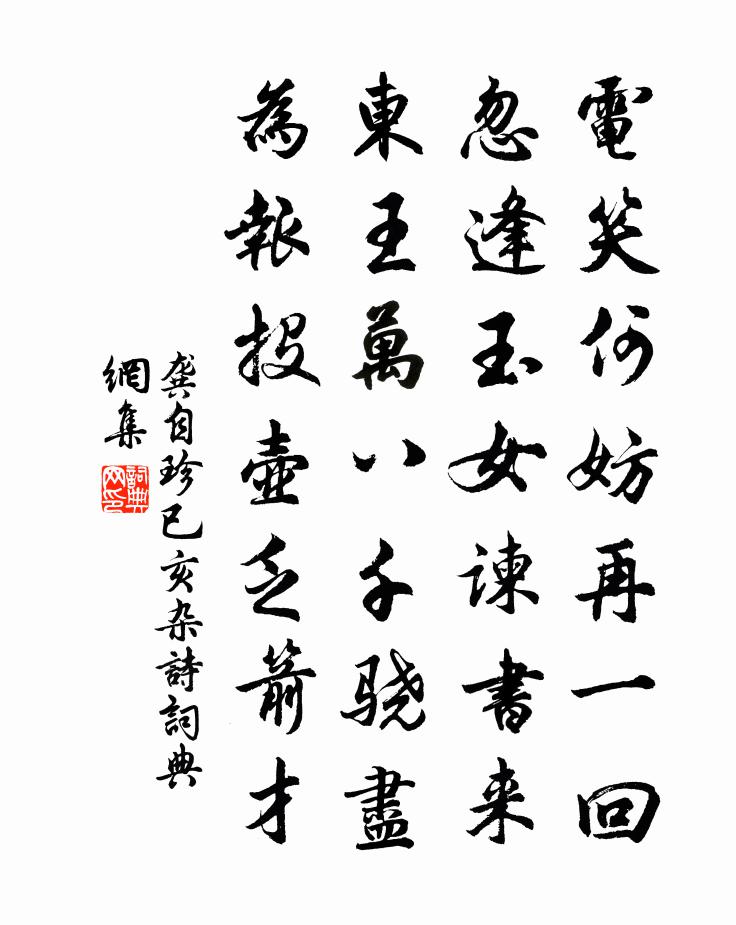 電笑何妨再一回
忽逢玉女諫書来
東王萬八千骁盡
為報投壺乏箭才
龚自珍己亥杂詩詞典
網集
詞典
网印